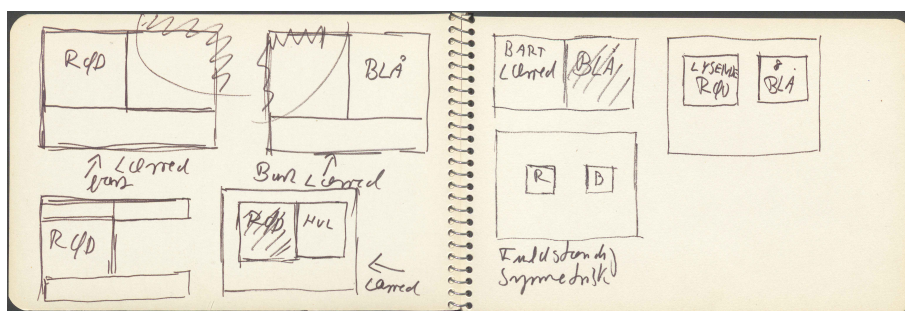 RØD
BLÅ
Lærred
bart
Bart Lærred
RØD
RØD
HUL
Lærred
BART
Lærred
BLÅ
LYSENDE
RØD
BLÅ
R
B
Fuldstændig
Symmetrisk